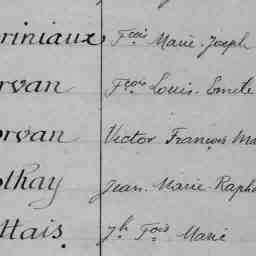 riniaux Fçois Marie Joseph
rvan Fçois Louis Emile
orvan Victor François Ma
olhay Jean Marie Rapha
ttais Jh Fçois Marie